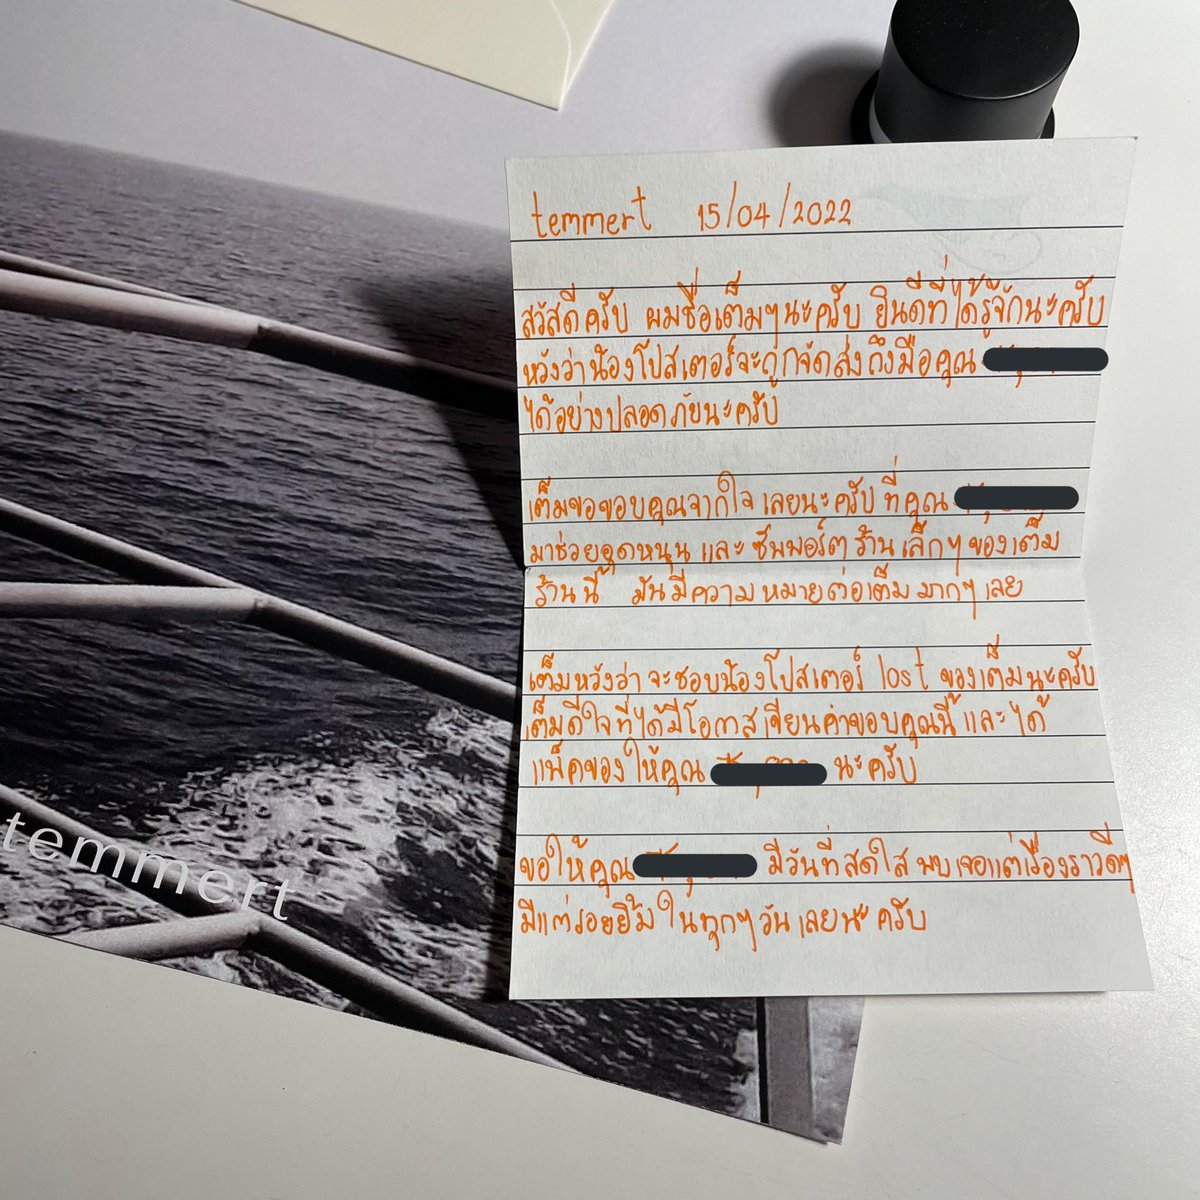 temmert 15/04/2022
สวัสดีครับ ผมชื่อเต็มๆนะครับ ยินดีที่ได้รู้จักนะครับ
หวังว่าน้องโปสเตอร์จะถูกจัดส่งถึงมือคุณ
ได้อย่างปลอดภัยนะครับ
เต็มขอขอบคุณจากใจเลยนะครับ ที่คุณ
มาช่วยอุดหนุน และ ซัพพอร์ตร้านเล็กๆของเต็ม
ร้านนี้ มันมีความหมายต่อเต็มมากๆเลย
เต็มหวังว่าจะชอบน้องโปสเตอร์ lost ของเต็มนะครับ
เต็มดีใจที่ได้มีโอกาสเขียนคำขอบคุณนี้ และได้
แพ็คของให้คุณ นะครับ
ขอให้คุณ มีวันที่สดใส พบเจอแต่เรื่องราวดีๆ
มีแต่รอยยิ้มในทุกๆวันเลยนะครับ
temmert